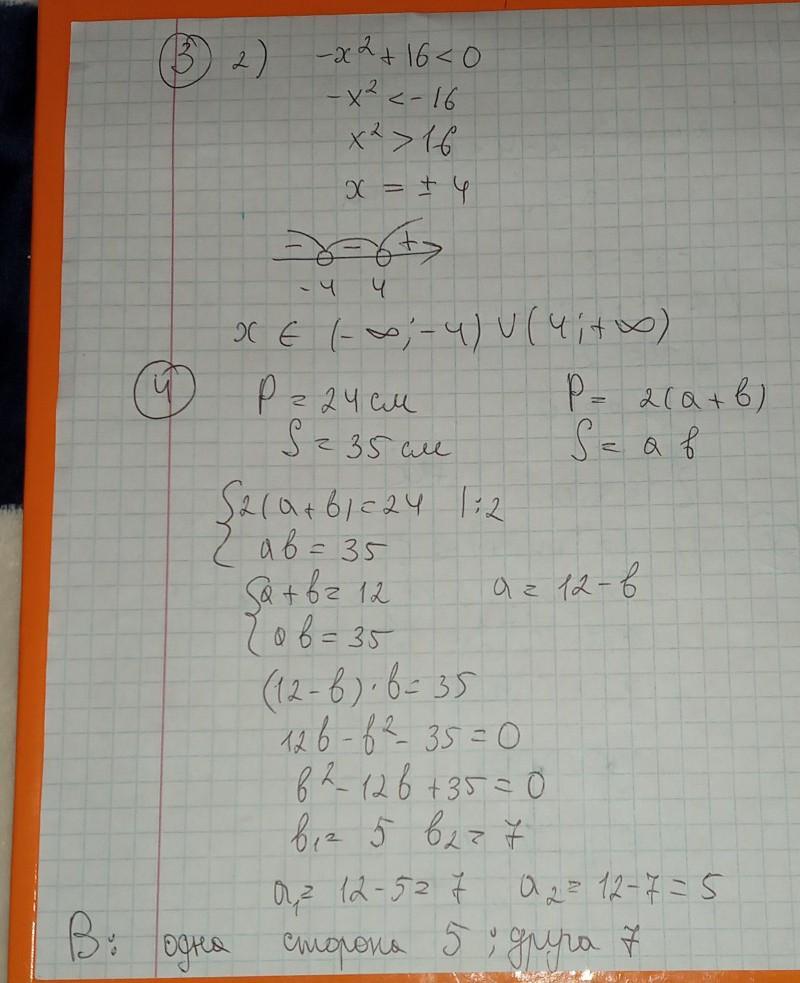 3 2) -x² + 16 < 0
-x² < -16
x² > 16
x = ± 4
- - +
-4 4
x ∈ (-∞; -4) ∪ (4; +∞)
4 P = 24 см P = 2(a + b)
S = 35 см S = a b
{2(a + b) = 24 |:2
{ab = 35
{a + b = 12 a = 12 - b
{ab = 35
(12 - b) · b = 35
12b - b² - 35 = 0
b² - 12b + 35 = 0
b₁ = 5 b₂ = 7
a₁ = 12 - 5 = 7 a₂ = 12 - 7 = 5
В: одна сторона 5 ; друга 7